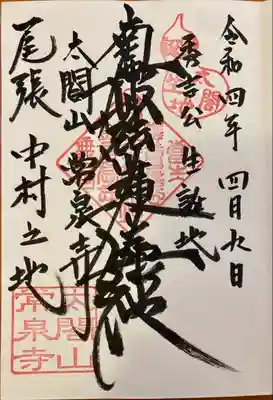 令和四年 四月九日
秀吉公 生誕地
南無妙法蓮華経
太閤山 常泉寺
尾張 中村之地
太閤山
常泉寺